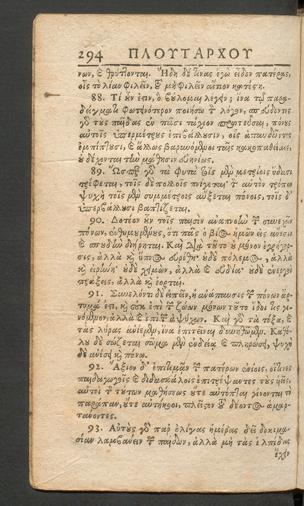 294 ΠΛΟΥΤΑΡΧΟΥ
νων, καὶ Ἤδη δέ τινας ἐγὼ εἶδον πατέρας,
οἷς τὸ λίαν φιλεῖν, τοῦ μὴ φιλεῖν αἴτιον κατέστη.
88. Τί οὖν ἐστιν, ὃ βούλομαι λέγειν; ἵνα τῷ παρα-
δείγματι φωτεινότερον ποιήσω τὸν λόγον, σπεύδοντες
γὸ τοὺς παῖδας ἐν πᾶσι τάχιον πρωτεῦσαι, πόνους
αὐτοῖς ὑπερμέτρους ἐπιβάλλουσιν, οἷς ἀπαυδῶντες
ἐκπίπτουσι, καὶ ἄλλως βαρυνόμενοι ταῖς κακοπαθείαις,
οὐ δέχονται τὴν μάθησιν εὐηνίως.
89. Ὥσπερ γὸ τὰ φυτὰ τοῖς μὲν μετρίοις ὕδασι
τρέφεται, τοῖς δὲ πολλοῖς πνίγεται, τὸν αὐτὸν τρόπον
ψυχὴ τοῖς μὲν συμμέτροις αὔξεται πόνοις, τοῖς δ'
ὑπερβάλλουσι βαπτίζεται.
90. Δοτέον οὖν τοῖς παισὶν ἀναπνοὴν τῶν συνεχῶν
πόνων, ἐνθυμουμένους, ὅτι πᾶς ὁ βίος ἡμῶν εἰς ἄνεσιν
καὶ σπουδὴν διῄρηται. Καὶ διὰ τοῦτο οὐ μόνον ἐγρήγορ-
σις, ἀλλὰ καὶ ὕπνος εὑρέθη· οὐδὲ πόλεμος, ἀλλὰ
καὶ εἰρήνη· οὐδὲ χειμών, ἀλλὰ καὶ εὐδία· οὐδὲ ἐνεργοὶ
πράξεις, ἀλλὰ καὶ ἑορταί.
91. Συνελόντι δὲ εἰπεῖν, ἡ ἀνάπαυσις τῶν πόνων ἄρ-
τυμά ἐστι, καὶ οὐκ ἐπὶ τῶν ζώων μόνον τοῦτο ἴδοι τις γι-
νόμενον, ἀλλὰ καὶ ἐπὶ τῶν ἀψύχων. Καὶ γὸ τὰ τόξα, καὶ
τὰς λύρας ἀνίεμεν, ἵνα ἐπιτεῖναι δυνηθῶμεν. Καθό-
λου δὲ σώζεται σῶμα μὲν ἐνδείᾳ καὶ πληρώσει, ψυχὴ
δὲ ἀνέσει καὶ πόνῳ.
92. Ἄξιον δ' ἐπιτιμᾶν τῶν πατέρων ἐνίοις, οἵτινες
παιδαγωγοῖς καὶ διδασκάλοις ἐπιτρέψαντες τοὺς υἱεῖς,
αὐτοὶ τῆς τούτων μαθήσεως οὔτε αὐτόπται γίνονται τὸ
παράπαν, οὔτε αὐτήκοοι, πλεῖστον τοῦ δέοντος ἁμαρ-
τάνοντες.
93. Αὐτοὺς γὸ παρ' ὀλίγας ἡμέρας δεῖ δοκιμα-
σίαν λαμβάνειν τῶν παίδων, ἀλλὰ μὴ τὰς ἐλπίδας
ἔχειν